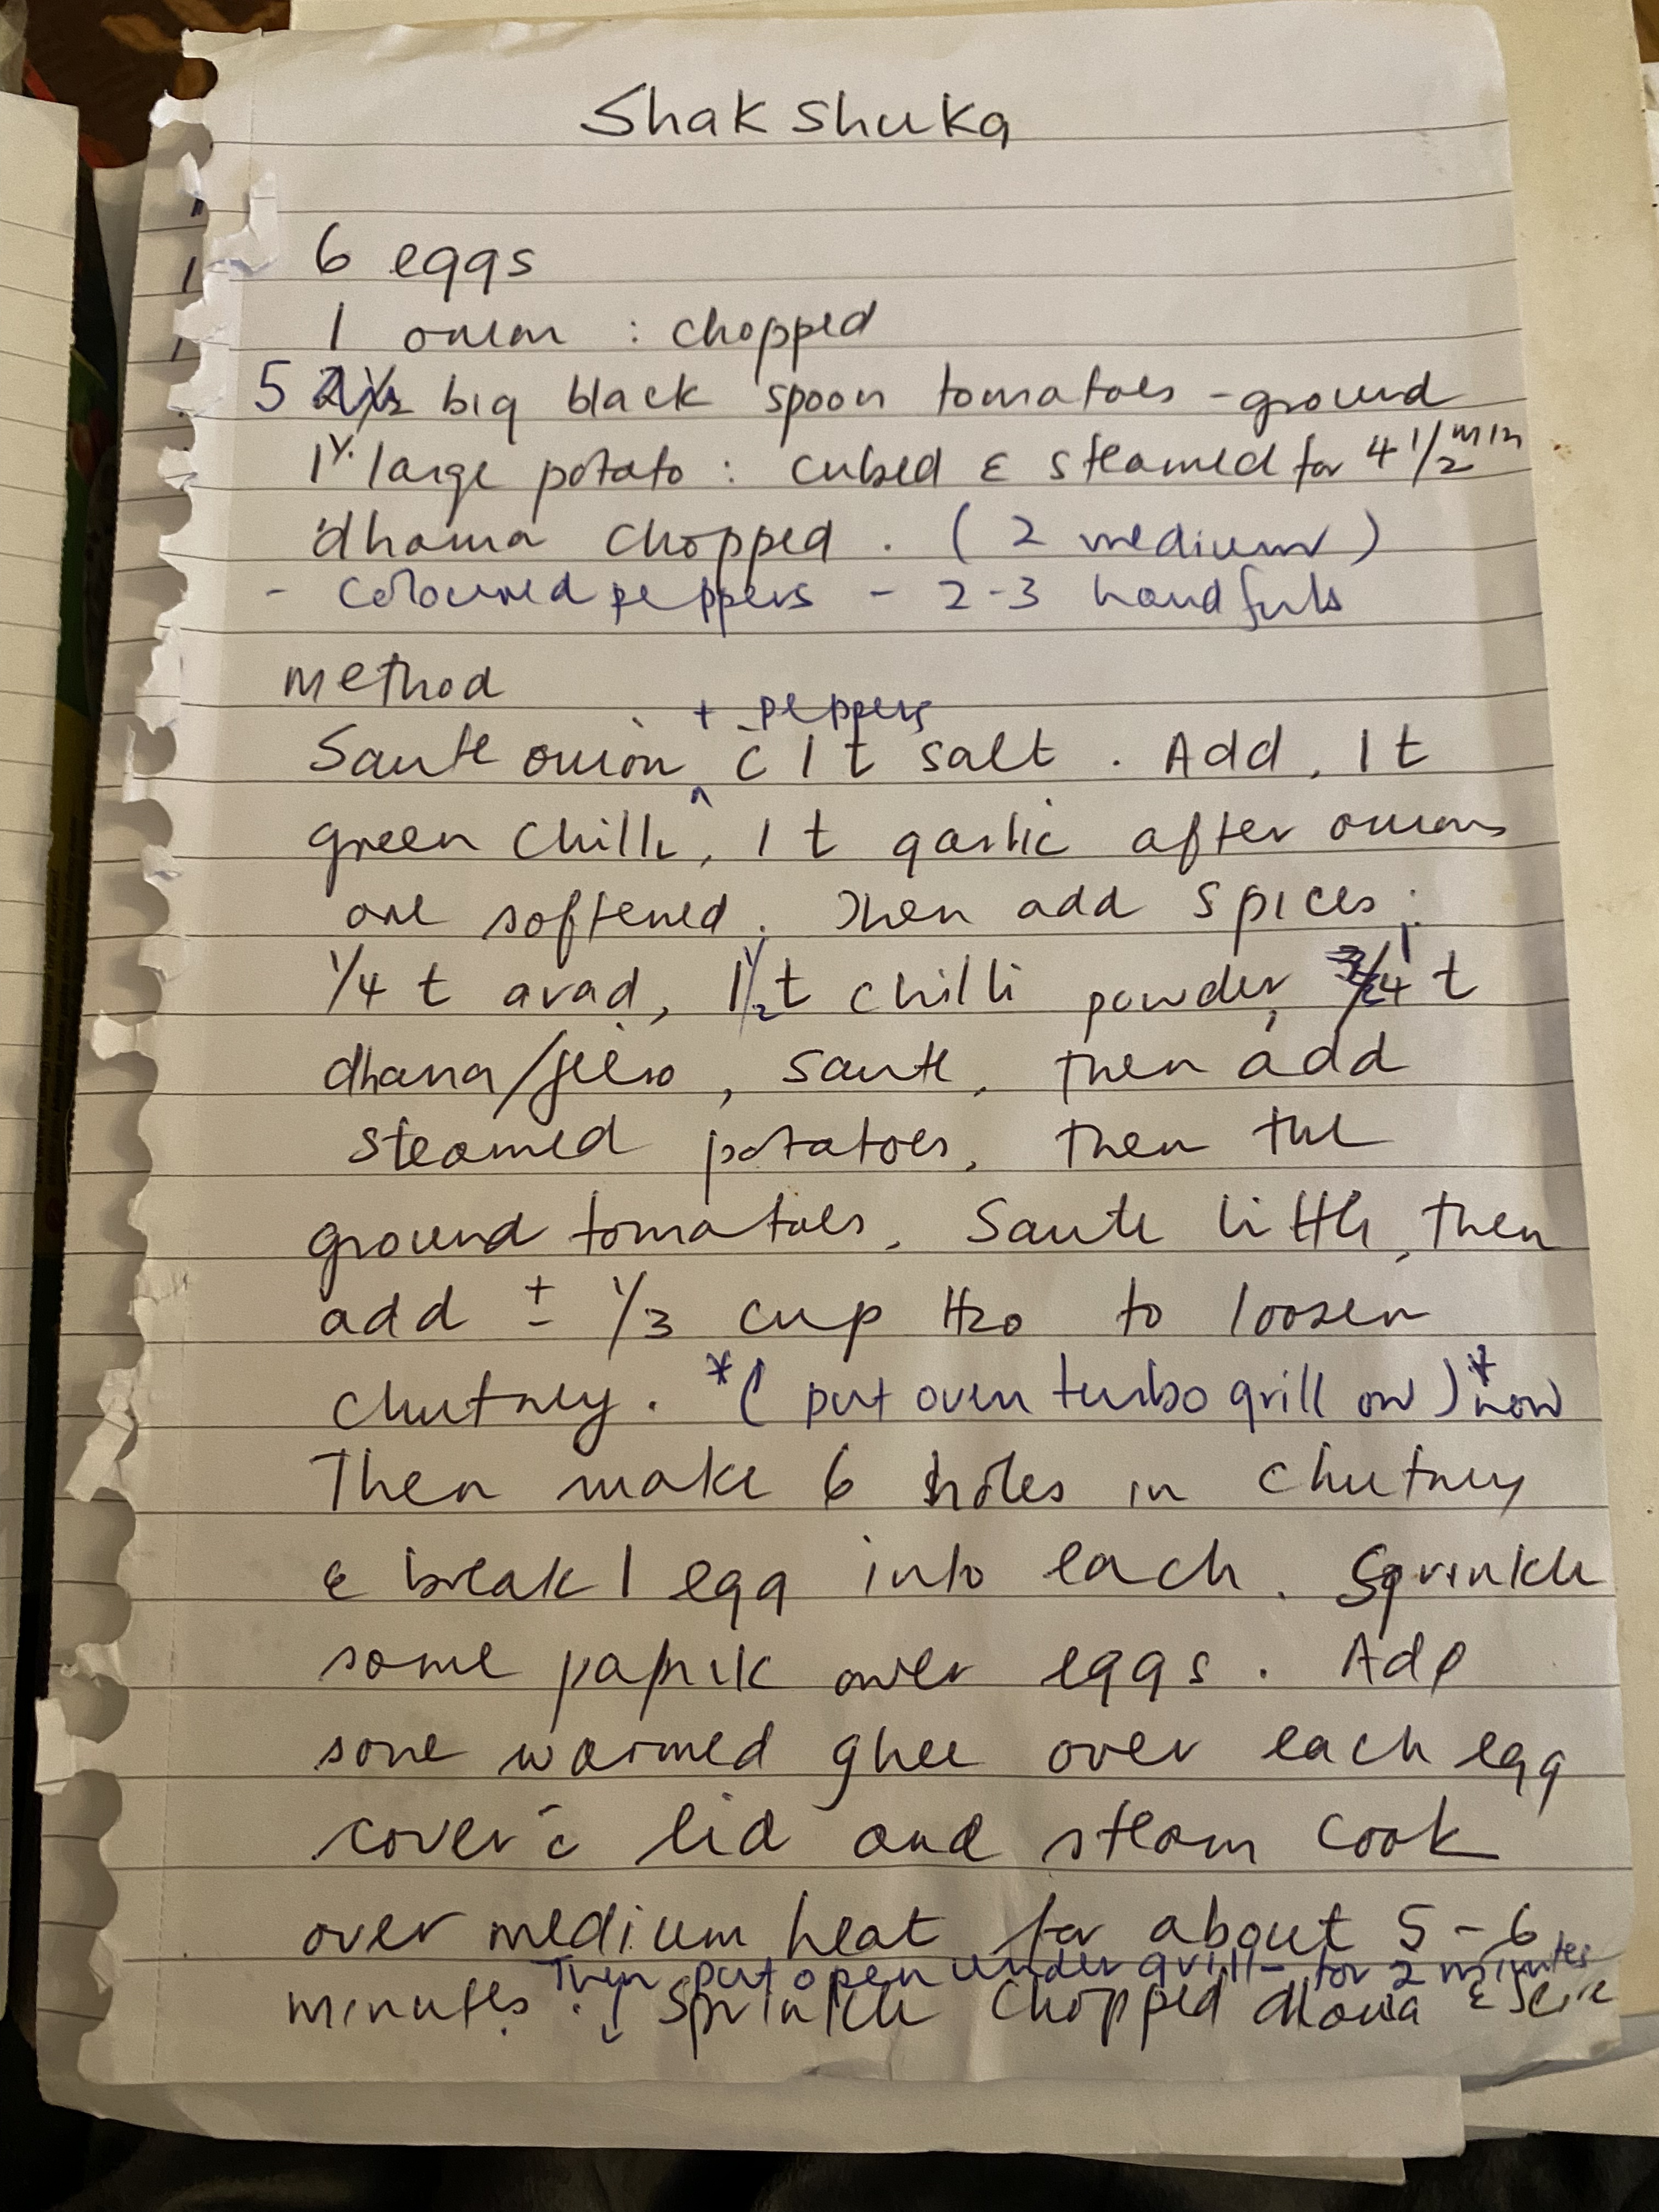 Shakshuka
6 eggs
1 onion : chopped
5 big black spoon tomatoes - ground
1 large potato : cubed & steamed for 4 1/2 min
dhania chopped . (2 medium)
- coloured peppers - 2-3 handfuls
method
+ peppers
Saute onion ^ c̄ 1 t salt . Add , 1 t
green chilli, 1 t garlic after onions
are softened . Then add spices :
1/4 t arad, 1/2 t chilli powder, 1 t
dhana/jeero , saute , then add
steamed potatoes, then the
ground tomatoes. Saute little, then
add ± 1/3 cup H2O to loosen
chutney . *( put oven turbo grill on )* now
Then make 6 holes in chutney
& break 1 egg into each . Sprinkle
some paprik over eggs . Add
some warmed ghee over each egg
cover c̄ lid and steam cook
over medium heat for about 5 - 6
Then put open under grill - for 2 minutes
minutes . Sprinkle chopped dhania &